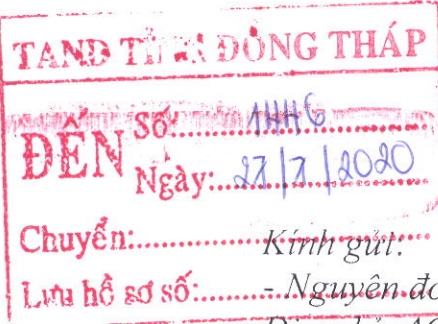 TAND TỈNH ĐỒNG THÁP
ĐẾN Số:......1446
Ngày:...27/7/2020
Chuyển:
Kính gửi:
Lưu hồ sơ số:
- Nguyên đơ